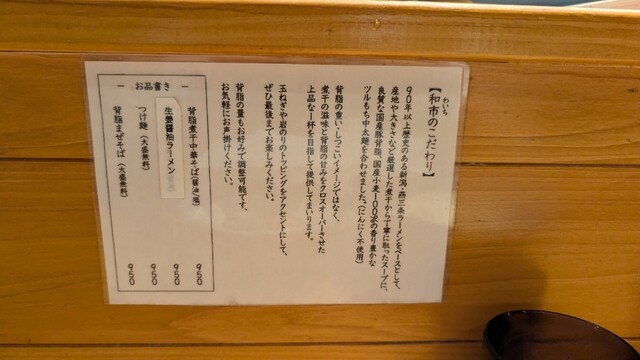 【和市のこだわり】
わいち
90年以上歴史のある新潟・燕三条ラーメンをベースとして、
産地や大きさなど厳選した煮干から丁寧に取ったスープに、
良質な国産豚背脂、国産小麦100%の香り豊かな
ツルもち中太麺を合わせました。(にんにく不使用)
背脂の重い・しつこいイメージではなく、
煮干の滋味と背脂の甘みをクロスオーバーさせた
上品な一杯を目指して提供してまいります。
玉ねぎや岩のりのトッピングをアクセントにして、
ぜひ最後までお楽しみください。
背脂の量もお好みで調整可能です。
お気軽にお声掛けください。
ー お品書き ー
背脂煮干中華そば(醤油/塩) 950
生姜醤油ラーメン 950
つけ麺(大盛無料) 950
背脂まぜそば(大盛無料) 950